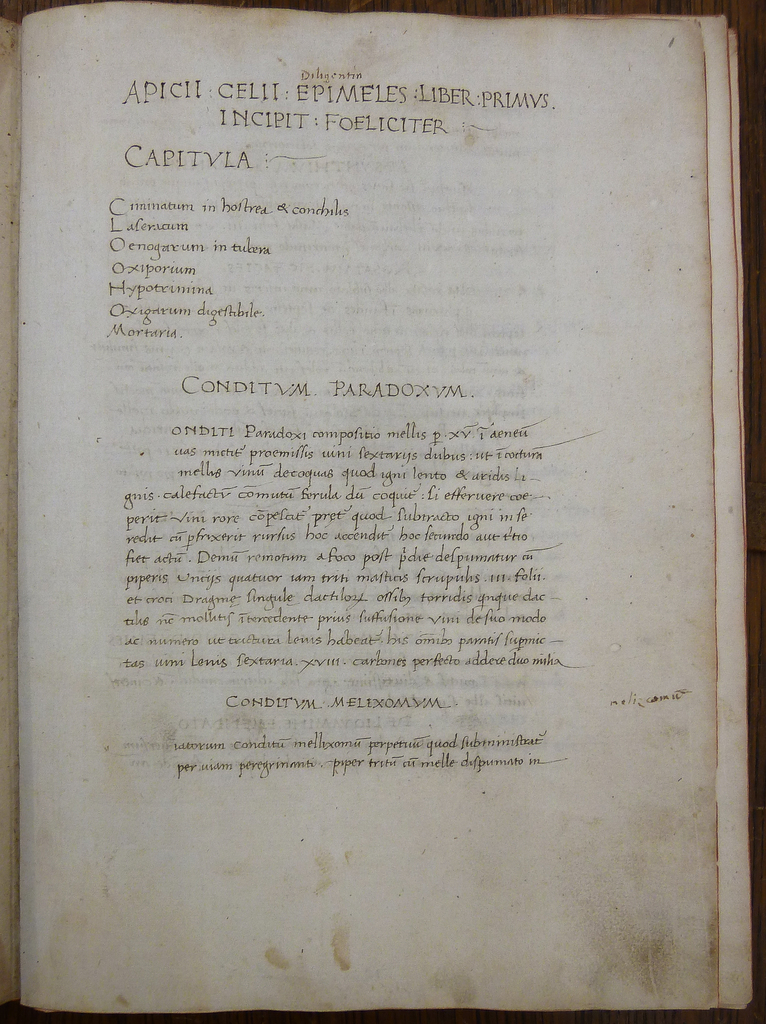 Diligentin
APICII : CELII : EPIMELES : LIBER : PRIMVS .
INCIPIT : FOELICITER :~
CAPITVLA :~
Ciminatum in hostrea & conchilis
Laseratum
Oenogarum in tubera
Oxiporium
Hypotrimina
Oxigarum digestibile.
Mortaria .
CONDITVM . PARADOXVM .
ONDITI Paradoxi compositio mellis p̄ . XV ī aeneū
uas mictit̄ proemissis uini sextarijs dubus : ut ī coctura
mellis vinū decoquas quod igni lento & aridis li-
gnis . calefactū comutū ferula dū coquit̄ : si efferuere coe-
perit vini rore cōpescit̄ pret̄ quod subtracto igni in se
redit cū pfrixerit rursus hoc accendit̄ hoc secundo aut t̄tio
fiet actū . Demū remotum a foco post p̄die despumatur cū
piperis Uncijs quatuor iam triti masticis scrupulis . III . folii .
et croci Dragme singule dactiloꝝ ossibꝫ torridis qnque dac-
tilis mollitis ītercedente prius suffusione vini de suo modo
ac numero ut trictura lenis habeat̄ his om̄ibꝫ paratis supmic-
tas uini lenis sextaria . XVIII . carbones perfecto addere duo milia
CONDITVM . MELIXOMVM .
melizomū
iatorum Conditū mellixomū perpetuū quod subministrat̄
per uiam peregrinanti . piper tritū cū melle dispumato in